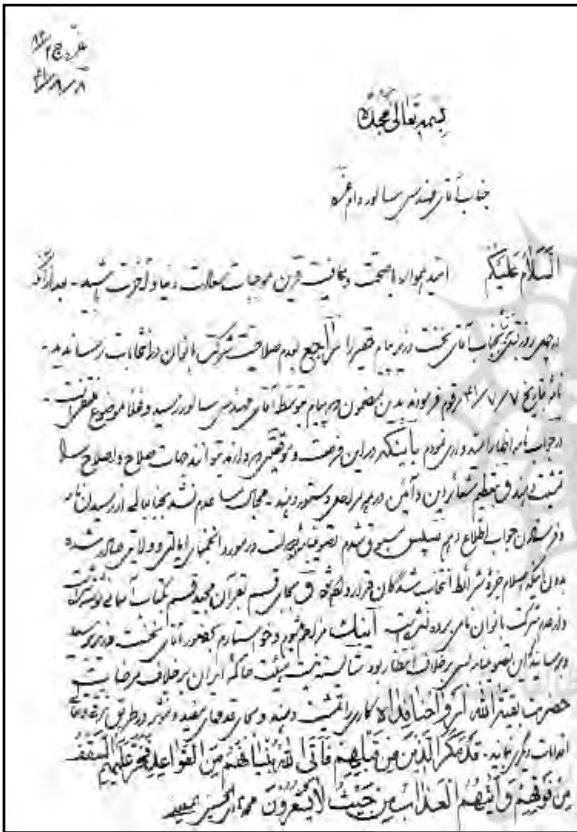 بسمه تعالی مجده
جناب آقای مهندس سالور دام عزه
السلام علیکم امید همواره با صحت و عافیت قرین موجبات سعادت دنیا و آخرت باشید - بعد
در چندی روز قبل جناب آقای نخست وزیر پیام حقیر را راجع بعدم صلاحیت شرکت بانوان در انتخابات رساندید -
نامه بتاریخ ۴۱/۷/۷ مرقوم فرمودند بدین مضمون پیام توسط آقای مهندس سالور رسید و فعلا موضوع منتفی است -
در جواب نامه اظهار امیدواری نمودم باینکه در این فرصت و توفیقی که دارند بتوانند جهات صلاح و اصلاح را
تثبیت دهند و تعظیم شعائر دین و آئین در همه مراحل دستور دهند - مجال شما عدم نشد بجنابعالی از رسیدن نامه
و فرستادن جواب اطلاع دهم سپس مسبوق شدم تصویبنامه دولت در مورد انجمنهای ایالتی و ولایتی صادر شده
بدون اینکه اسلام جزء شرائط انتخاب شدگان قرار دهند و بجای قسم بقرآن مجید قسم بکتاب آسمانی نوشته
و از عدم شرکت بانوان نامی برده نشده است اینک مزاحم شود و خواستارم بحضور آقای نخست وزیر
برسانید این تصویبنامه بسی برخلاف انتظار بود شایسته نیست هیئت حاکمه ایران برخلاف مرضات
حضرت بقیة الله ارواحنا فداه کاری را تثبیت دهند و بجای قدمهای مفید و مؤثر در طریق
اقدامات دیگری نمایند - قد مکر الذین من قبلهم فاتی الله بنیانهم من القواعد فخر علیهم السقف
من فوقهم و اتیهم العذاب من حیث لا یشعرون